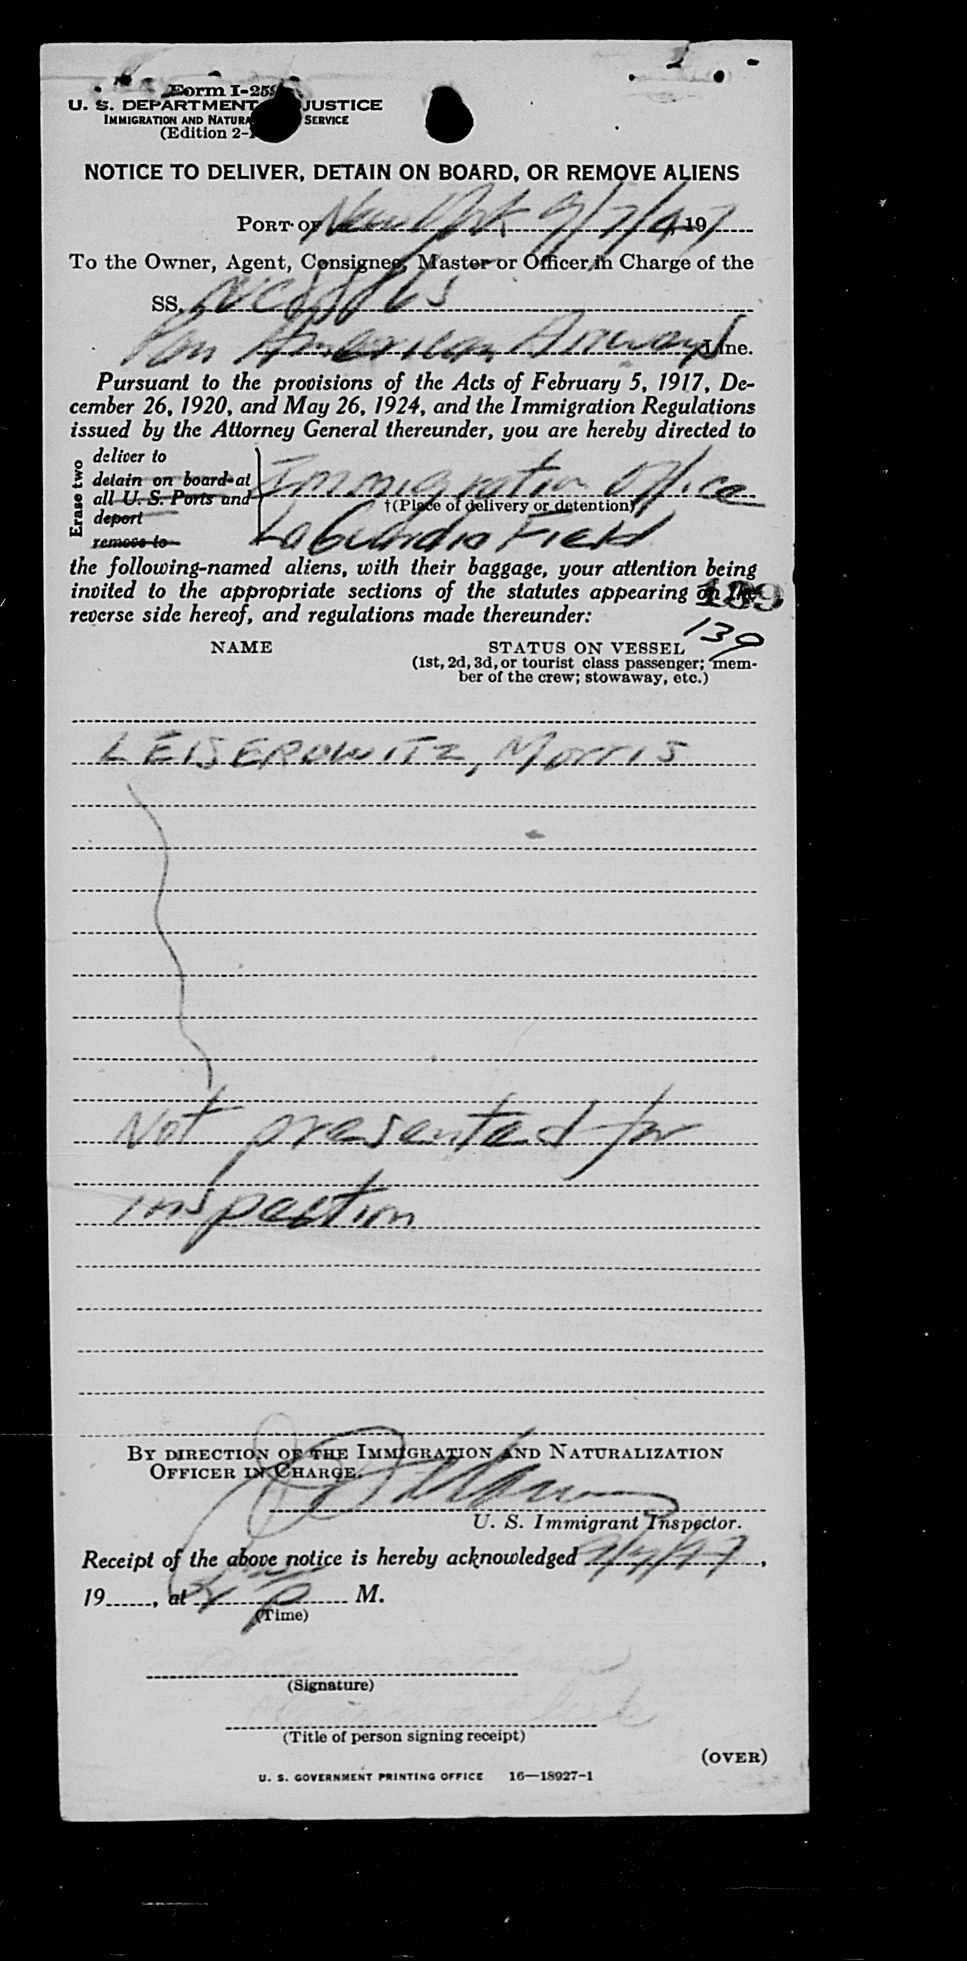 Form I-259
U. S. DEPARTMENT JUSTICE
IMMIGRATION AND NATURA SERVICE
(Edition 2-
NOTICE TO DELIVER, DETAIN ON BOARD, OR REMOVE ALIENS
PORT OF New York 9/7/47 19
To the Owner, Agent, Consignee, Master or Officer in Charge of the
SS. NC88865
Pan American Airways Line.
Pursuant to the provisions of the Acts of February 5, 1917, De-
cember 26, 1920, and May 26, 1924, and the Immigration Regulations
issued by the Attorney General thereunder, you are hereby directed to
Erase two
deliver to
detain on board at
all U. S. Ports and
deport
remove to
Immigration Office
†(Place of delivery or detention)
LaGuardia Field
the following-named aliens, with their baggage, your attention being
invited to the appropriate sections of the statutes appearing on the
139
reverse side hereof, and regulations made thereunder:
139
NAME STATUS ON VESSEL
(1st, 2d, 3d, or tourist class passenger; mem-
ber of the crew; stowaway, etc.)
LEISEROWITZ, Morris
Not presented for
inspection
BY DIRECTION OF THE IMMIGRATION AND NATURALIZATION
OFFICER IN CHARGE.
U. S. Immigrant Inspector.
Receipt of the above notice is hereby acknowledged 9/7/47,
19, at P M.
(Time)
(Signature)
(Title of person signing receipt)
(OVER)
U. S. GOVERNMENT PRINTING OFFICE 16—18927-1